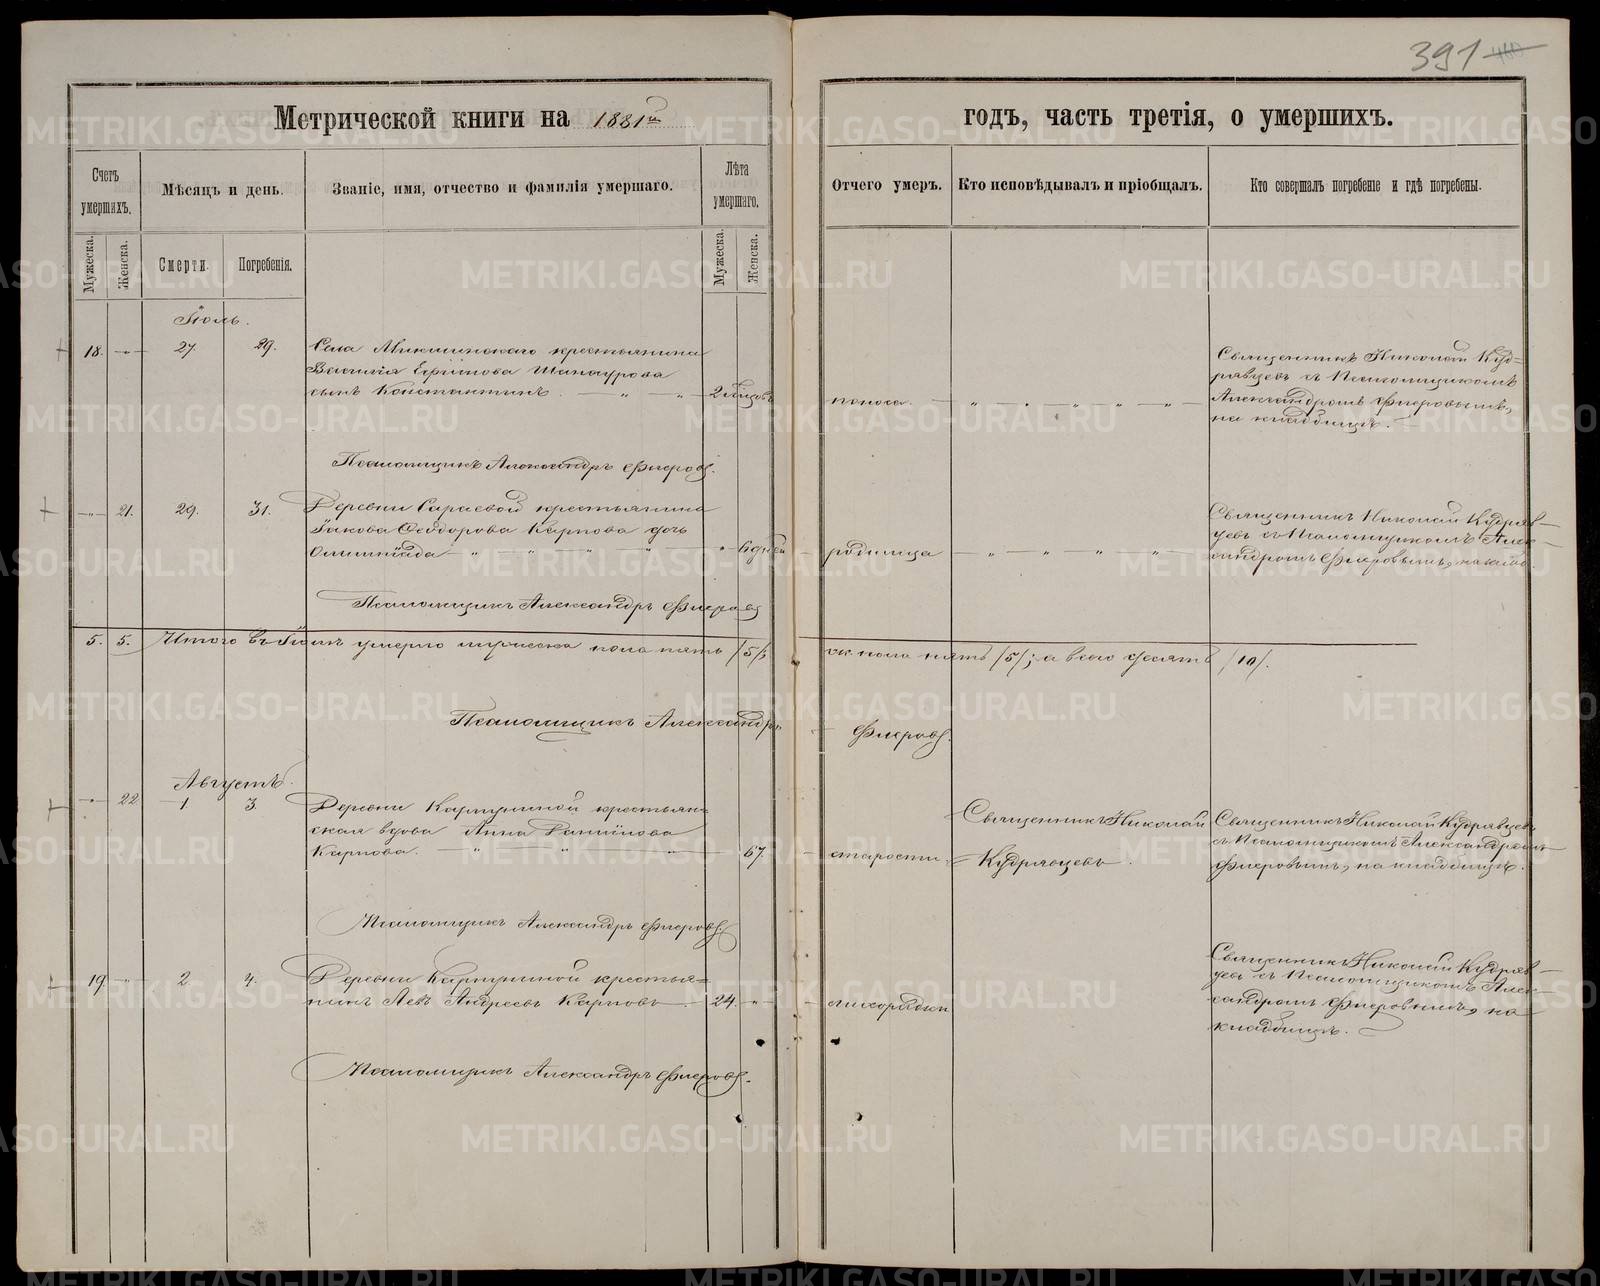 391 460
Метрической книги на 1881й годъ, часть третія, о умершихъ.
Счетъ умершихъ.
Мѣсяцъ и день.
Званіе, имя, отчество и фамилія умершаго.
Лѣта умершаго.
Отчего умеръ.
Кто исповѣдывалъ и пріобщалъ.
Кто совершалъ погребеніе и гдѣ погребены.
Мужеска.
Женска.
Смерти.
Погребенія.
Мужеска.
Женска.
Іюль.
18. 27. 29.
Села крестьянина
Василія Ефимова Шанаурова
сынъ Константинъ. 2
поноса.
Священникъ Николай Куд=
рявцевъ съ Псаломщикомъ
Александромъ Флеровымъ,
на кладбищѣ.
Псаломщикъ Александръ Флеровъ.
21. 29. 31.
Деревни Сараевой крестьянина
Іакова Ѳеодорова Карпова дочь
Олимпіада 6 дней
родимца
Священникъ Николай Кудряв-
цевъ съ Псаломщикомъ Алек-
сандромъ Флеровымъ, на клад.
Псаломщикъ Александръ Флеровъ
5. 5. Итого въ Іюлѣ умерло мужеска пола пять /5/,
ск. пола пять /5/; а всего десять /10/.
Псаломщикъ Александръ
Флеровъ.
Августъ.
22 1 3.
Деревни Карпушиной крестьян=
ская вдова Анна Даниилова
Карпова. 67.
старости
Священникъ Николай
Кудрявцевъ.
Священникъ Николай Кудрявцевъ
съ Псаломщикомъ Александромъ
Флеровымъ, на кладбищѣ.
Псаломщикъ Александръ Флеровъ.
19. 2 4.
Деревни Карпушиной крестья=
нинъ Левъ Андреевъ Карповъ 24.
лихорадки
Священникъ Николай Кудряв-
цевъ съ Псаломщикомъ Алек-
сандромъ Флеровымъ, на
кладбищѣ.
Псаломщикъ Александръ Флеровъ.
METRIKI.GASO-URAL.RU